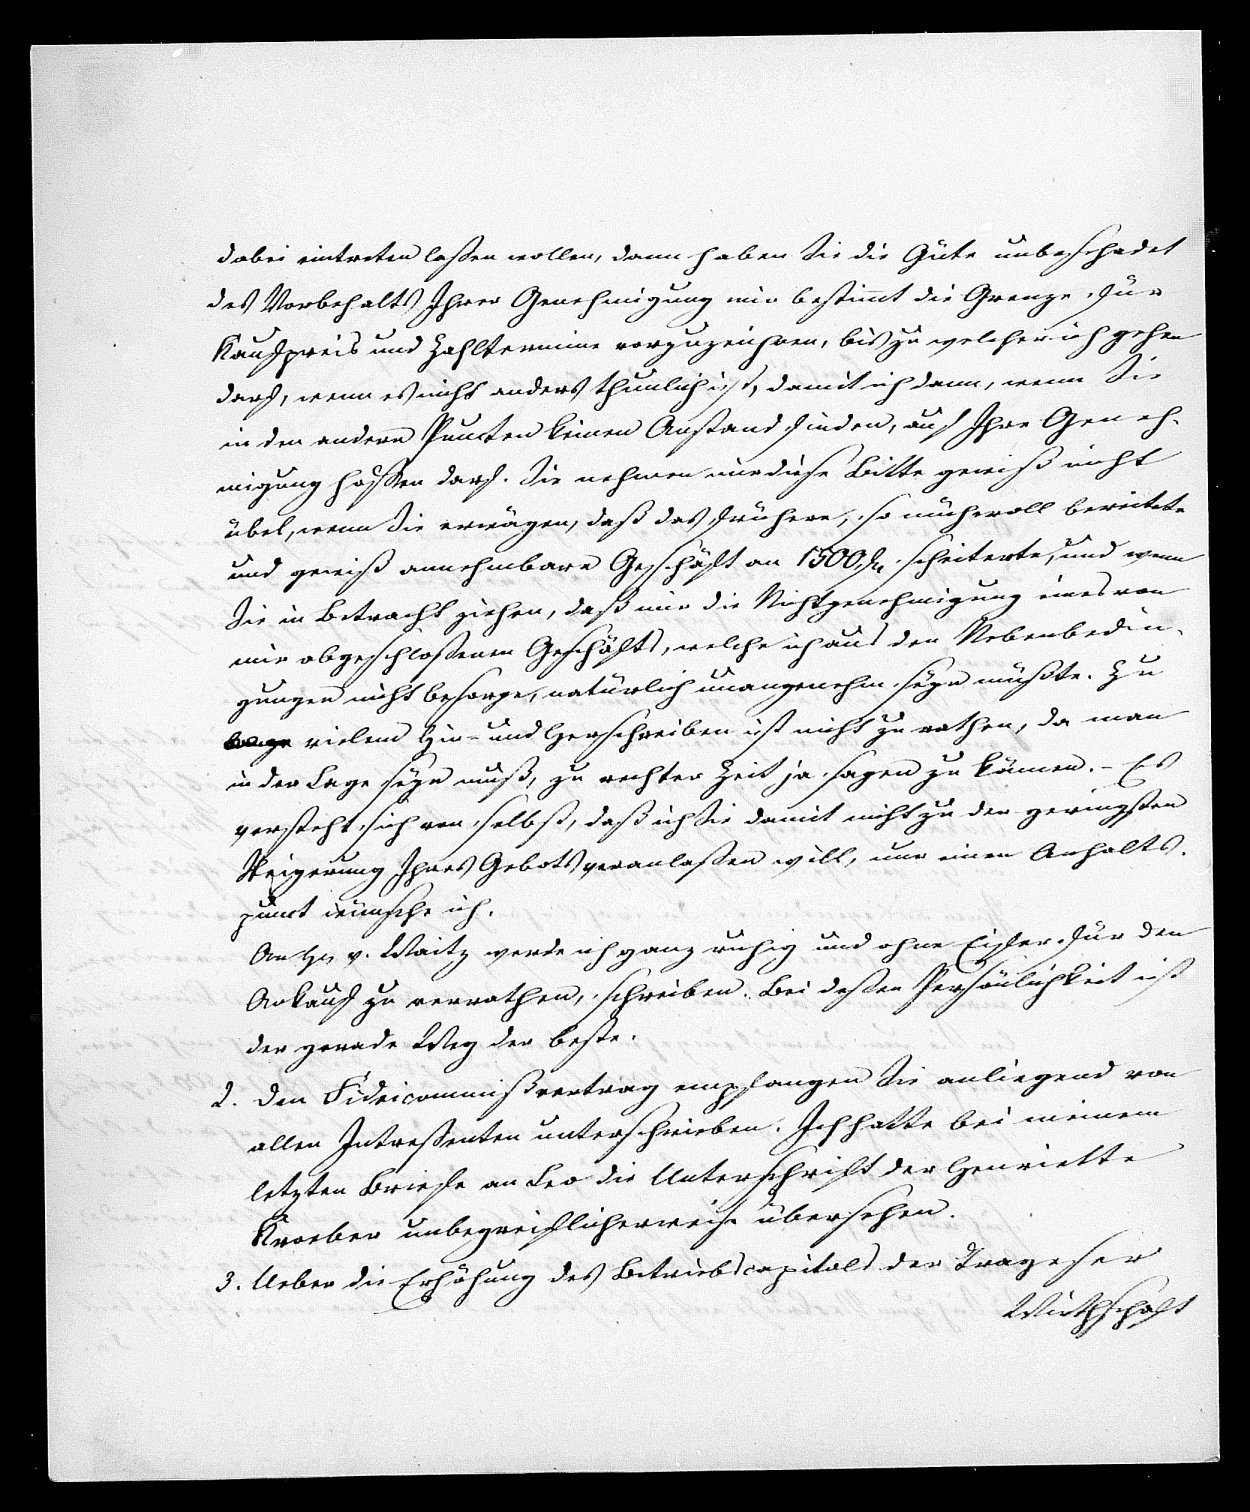 dabei eintreten laßen wollen, dann haben Sie die Güte unbeschadet
des Vorbehalts Ihrer Genehmigung mir bestimt die Grenze für
Kaufpreis und Zahltermine vorzuzeichnen, bis zu welcher ich gehen
darf, wenn es nicht anders thunlich ist, damit ich dann, wenn Sie
in den andern Puncten keinen Anstand finden, auf Ihre Geneh-
migung hoffen darf. Sie nehmen mir diese Bitte gewiß nicht
übel, wenn Sie erwägen, daß das frühere, so mühevoll bereitete
und gewiß annehmbare Geschäft an 1500 fl. scheiterte, und wenn
Sie in Betracht ziehen, daß mir die Nichtgenehmigung eines von
mir abgeschloßenen Geschäfts, welche ich aus den Nebenbedin-
gungen nicht besorge, natürlich unangenehm seyn müßte. Zu
vielem Hin- und Herschreiben ist nicht zu rathen, da man
in der Lage seyn muß, zu rechter Zeit ja sagen zu können. – Es
versteht sich von selbst, daß ich Sie damit nicht zu der geringsten
Steigerung Ihres Gebots veranlaßen will, nur einen Anhalts-
punct wünsche ich.
An Hn v. Waitz werde ich ganz ruhig und ohne Eifer für den
Ankauf zu verrathen, schreiben. Bei deßen Persönlichkeit ist
der gerade Weg der beste.
2. Den Fideicommißvertrag empfangen Sie anliegend von
allen Intreßenten unterschrieben. Ich hatte bei meinem
letzten Briefe an Leo die Unterschrift der Henriette
Kroeber unbegreiflicherweise übersehen.
3. Ueber die Erhöhung des Betriebscapitals der Trageser
Wirthschaft